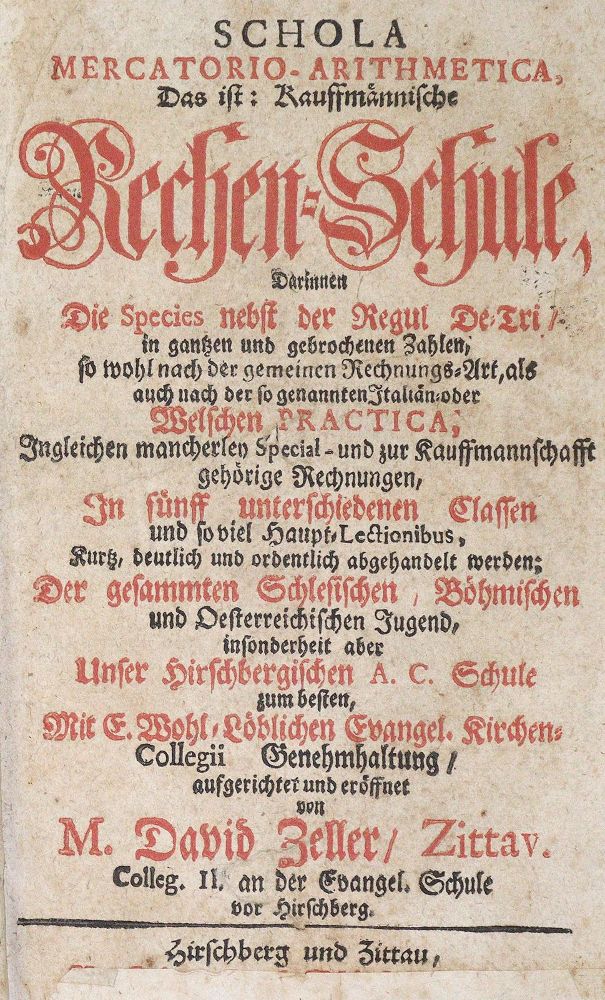 SCHOLA
MERCATORIO-ARITHMETICA,
Das ist: Kauffmännische
Rechen-Schule,
Darinnen
Die Species nebst der Regul De-Tri/
in gantzen und gebrochenen Zahlen,
so wohl nach der gemeinen Rechnungs-Art, als
auch nach der so genannten Italiän- oder
Welschen PRACTICA,
Ingleichen mancherley Special- und zur Kauffmannschafft
gehörige Rechnungen,
In fünff unterschiedenen Classen
und so viel Haupt-Lectionibus,
Kurtz, deutlich und ordentlich abgehandelt werden;
Der gesammten Schlesischen, Böhmischen
und Oesterreichischen Jugend,
insonderheit aber
Unser Hirschbergischen A. C. Schule
zum besten,
Mit E. Wohl-Löblichen Evangel. Kirchen-
Collegii Genehmhaltung/
aufgerichtet und eröffnet
von
M. David Zeller/ Zittav.
Colleg. II. an der Evangel. Schule
vor Hirschberg.
Hirschberg und Zittau,